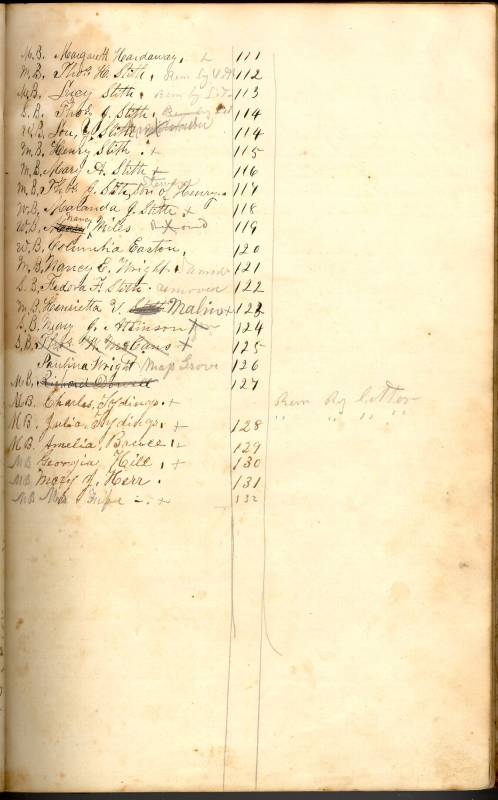 M.B. Margarett Hardaway, + 111
M.B. Thos. H. Stith, Rem by 112
M.B. Lucy Stith. Rem by Let 113
S.B. Thos. J. Stith, Rem by Let 114
M.B. J. Stith 114
M.B. Henry Stith. + 115
M.B. Mary A. Stith + 116
M.B. Thos. J. Stith, Son of Henry. 117
W.B. Malanda J. Stith + 118
W.B. Nancy Miles. 119
W.B. Columbia Easton, 120
M.B. Nancy E. Wright. 121
S.B. Fedora F. Stith. removed 122
M.B. Henrietta V. Stith Malin + 123
S.B. Mary J. Atkinson 124
S.B. Thos. W. McCans + 125
Paulina Wright Map Grove 126
M.B. 127
M.B. Charles Tydings. + Rem By Letter
M.B. Julia Tydings. + 128 " " " "
M.B. Amelia, + 129
M.B. Georgia Hill, + 130
M.B. Mary J. Kerr. 131
M.B. + 132